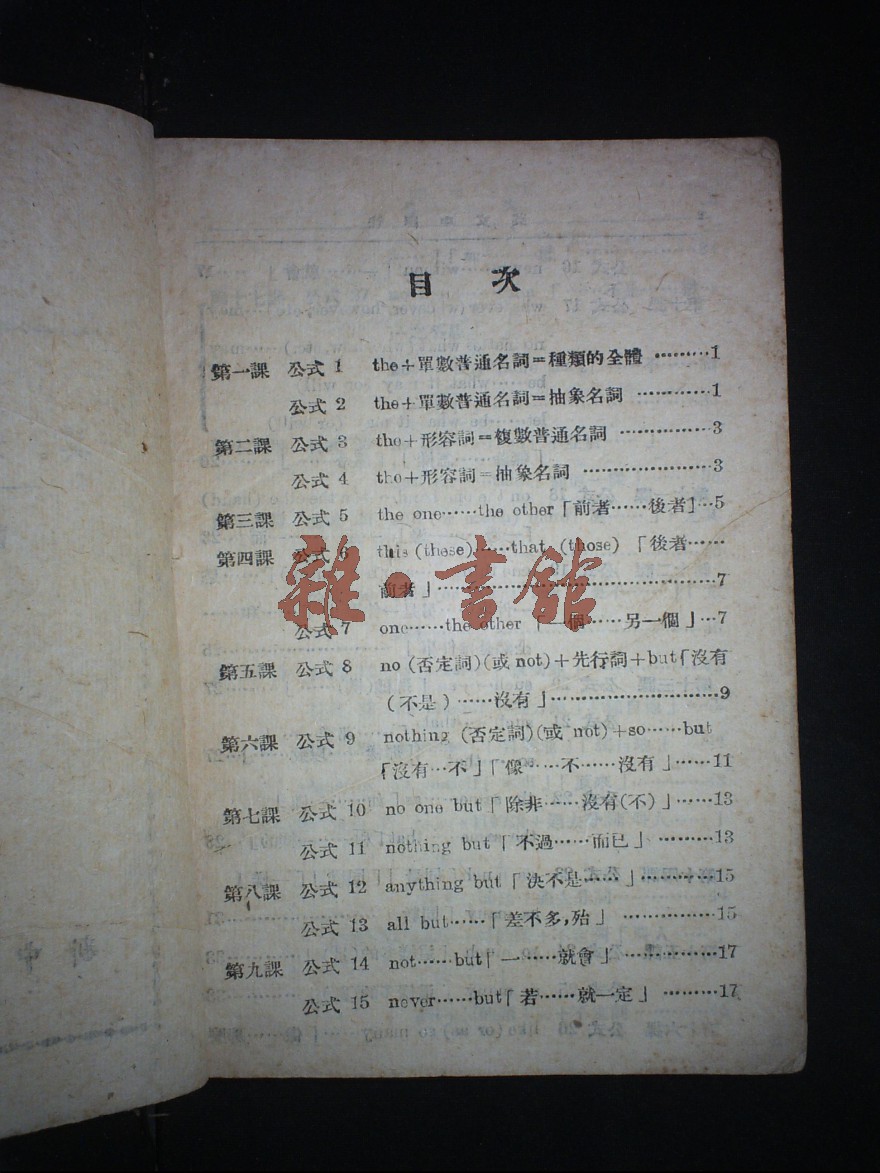 目次
第一課 公式 1 the+單數普通名詞=種類的全體 ………1
公式 2 the+單數普通名詞=抽象名詞 …………1
第二課 公式 3 the+形容詞=複數普通名詞 …………3
公式 4 the+形容詞=抽象名詞 ………………3
第三課 公式 5 the one……the other「前者……後者」…5
第四課 公式 6 this (these)……that (those)「後者……
前者」………………………………7
公式 7 one……the other「一個……另一個」…7
第五課 公式 8 no (否定詞)(或 not)+先行詞+but「沒有
(不是)……沒有」……………………9
第六課 公式 9 nothing (否定詞)(或 not)+so……but
「沒有…不」「像……不……沒有」……11
第七課 公式 10 no one but「除非……沒有(不)」……13
公式 11 nothing but「不過……而已」………13
第八課 公式 12 anything but「決不是……」…………15
公式 13 all but……「差不多,殆」……………15
第九課 公式 14 not……but「一……就會」……………17
公式 15 never……but「若……就一定」………17
雜·書館